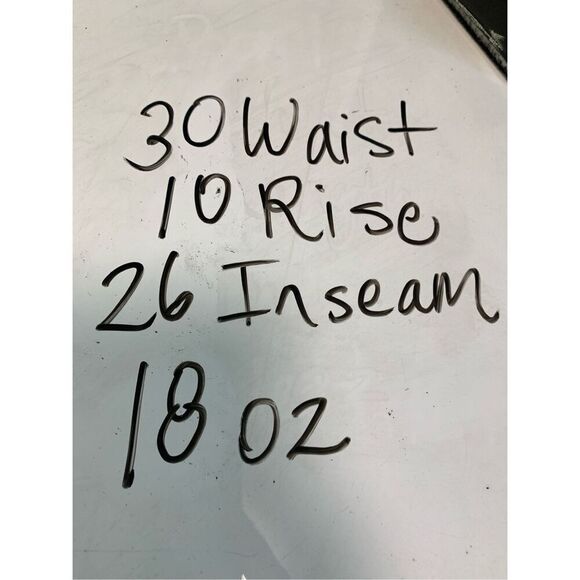 30 Waist
10 Rise
26 Inseam
18 oz